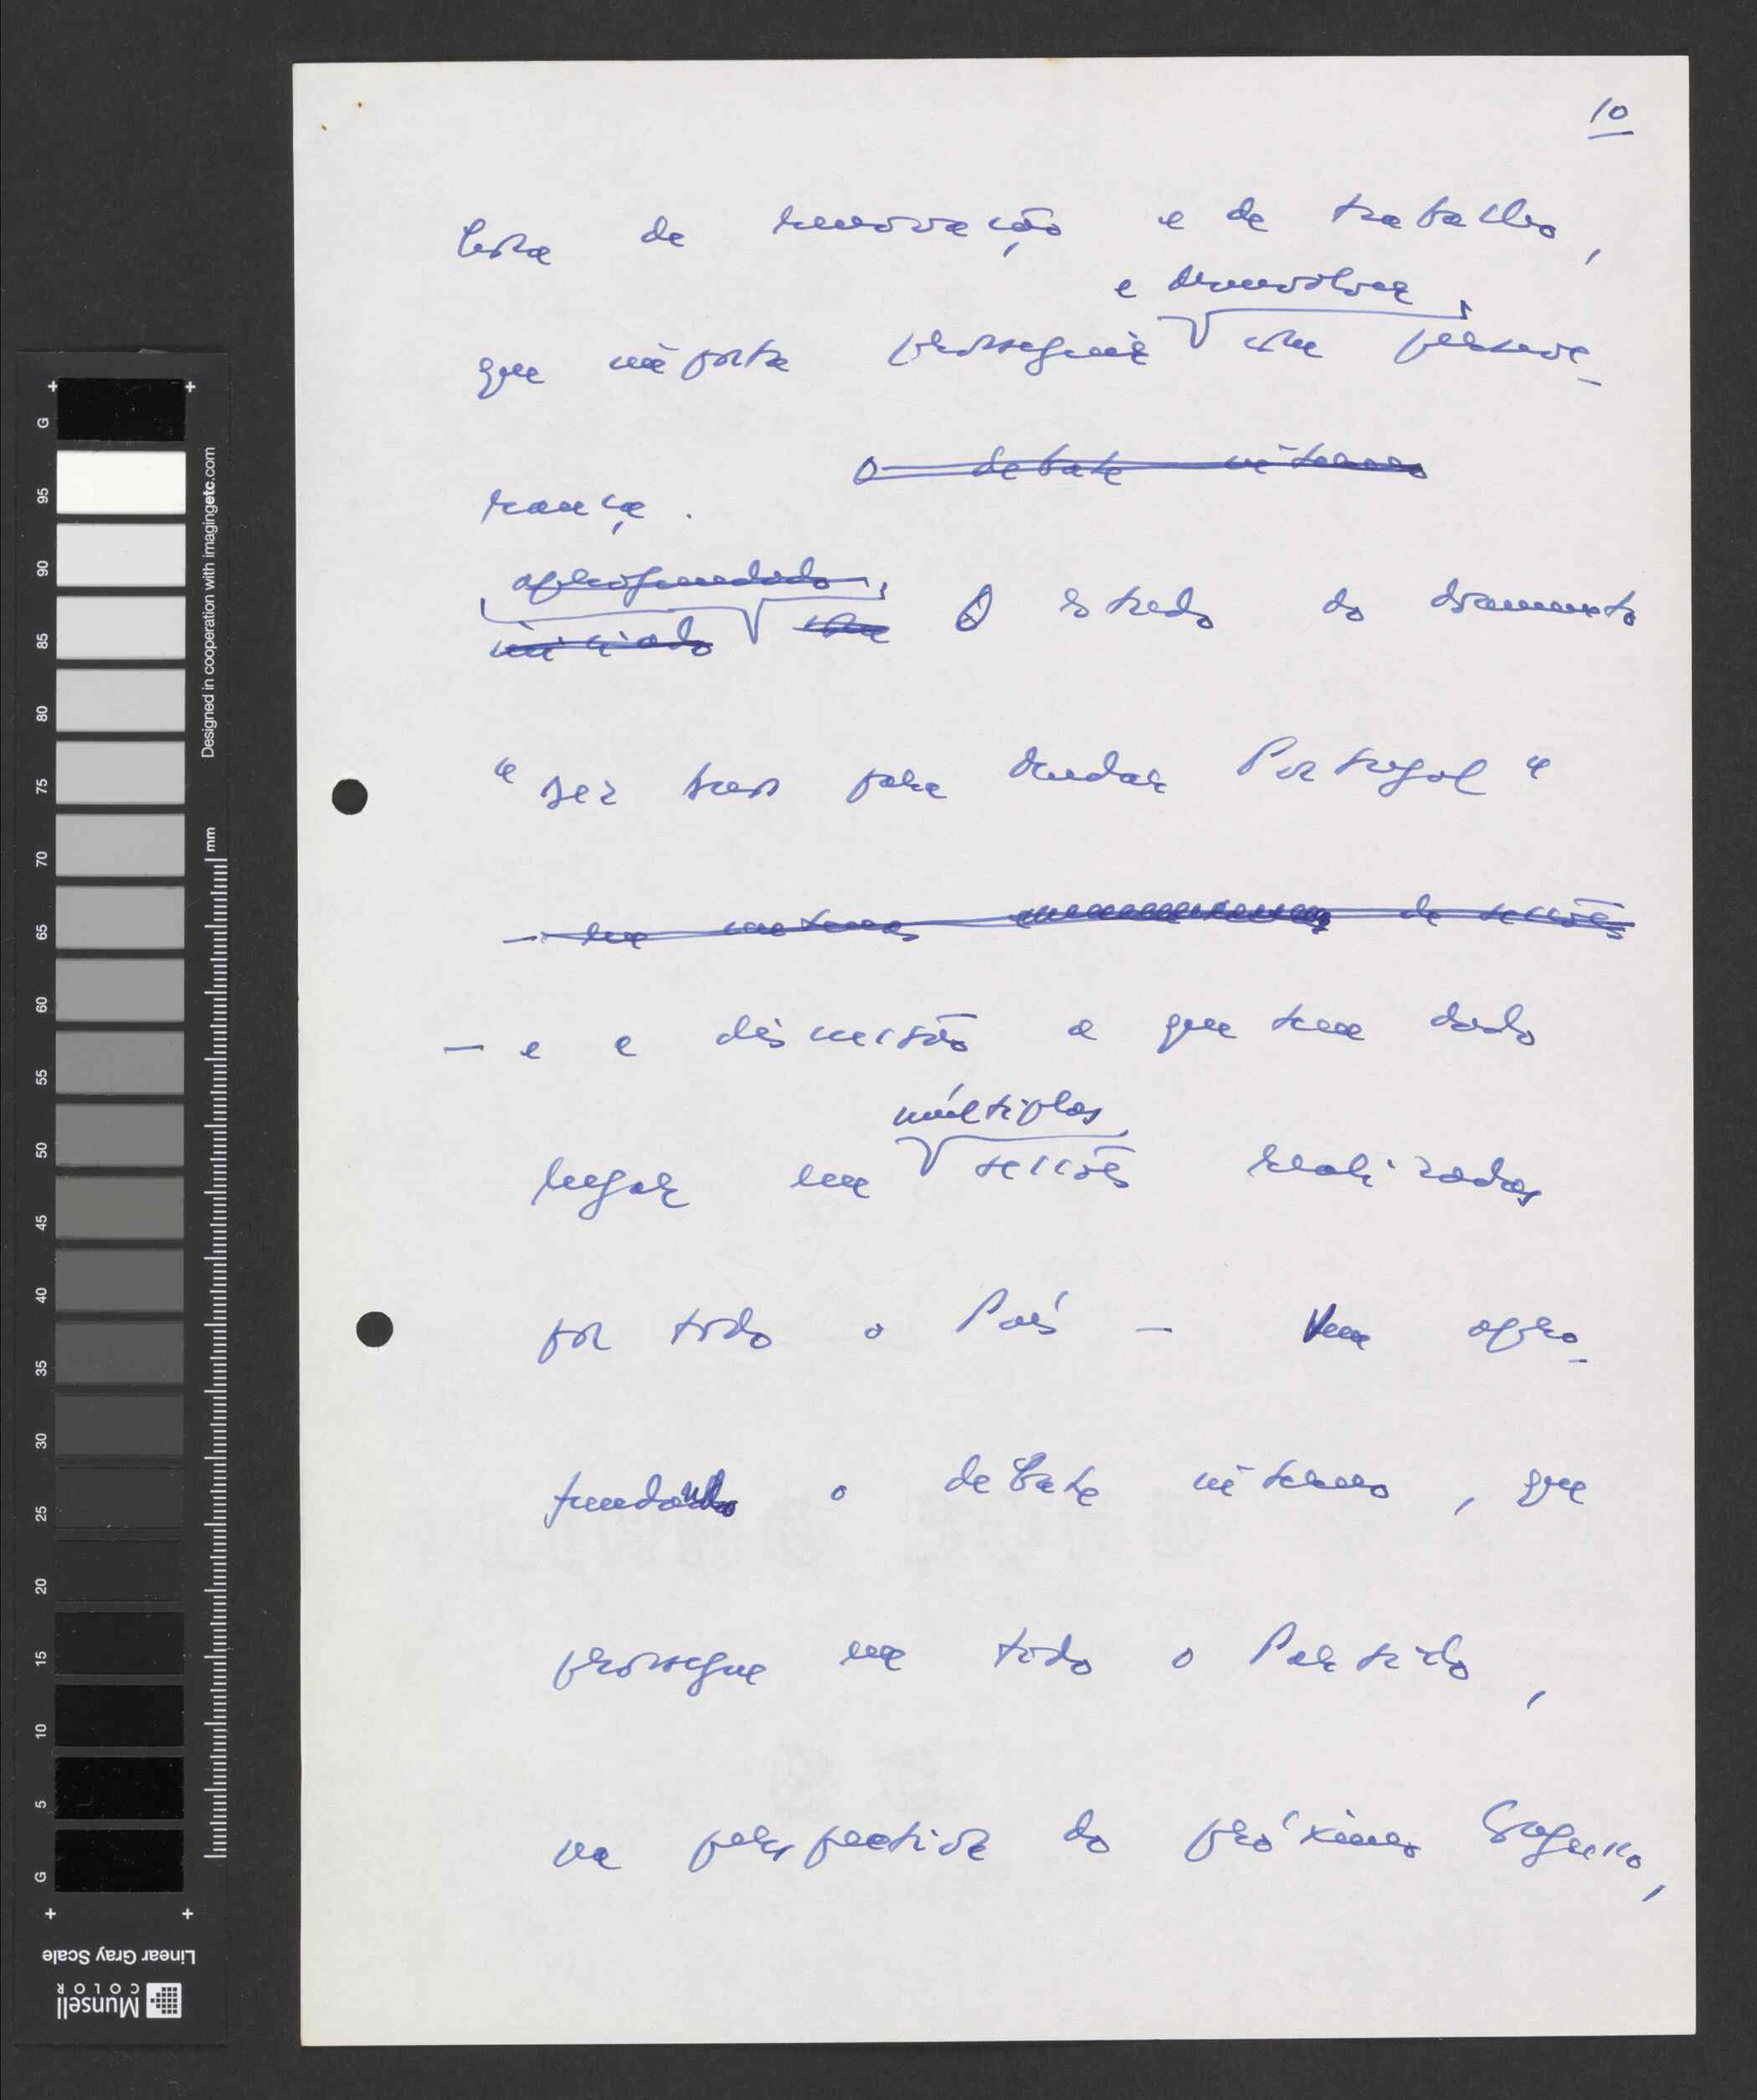 10
lista de renovação e de trabalho,
e desenvolver
que importa prosseguir com perseve-
o debate interno
rança.
aprofundado
iniciado com O estudo do documento
"Dez teses para mudar Portugal"
- em de sessões
- e a discussão a que tem dado
múltiplas
lugar em sessões realizadas
por todo o País - vem apro-
fundando o debate interno, que
prossegue em todo o Partido,
na perspectiva do próximo Congresso,
G
95
90
85
80
75
70
65
60
55
50
45
40
35
30
25
20
15
10
5
G
mm
Designed in cooperation with imagingetc.com
Linear Gray Scale
Munsell
COLOR